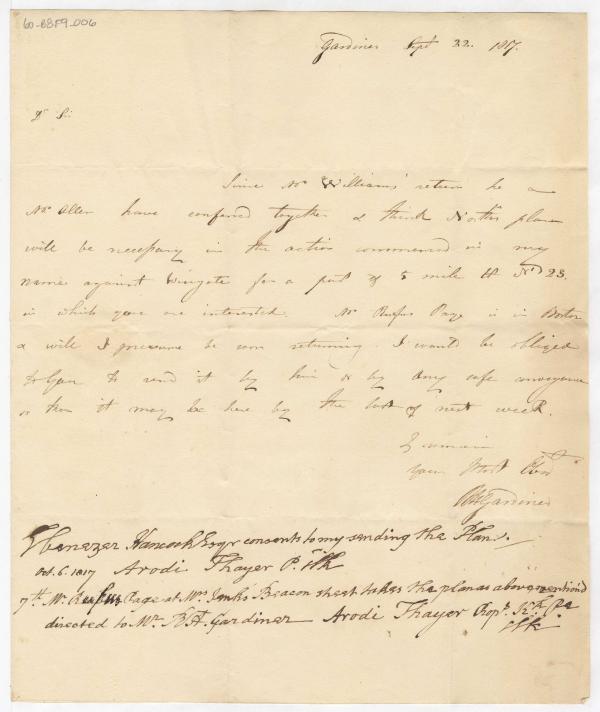 60-B8F9-006
Gardiner Sept 22. 1817.
Dr Sir
Since Mr Williams' return he &
Mr Allen have confered together & think North's plan
will be necessary in the action commenced in my
name against Wingate for a part of 5 mile lot No 23.
in which you are interested. Mr Rufus Page is in Boston
& will I presume be soon returning. I would be obliged
to you to send it by him or by any safe conveyance
so that it may be here by the last of next week.
I remain
your Most Obedt
RHGardiner
Ebenezer Hancock Esqr consents to my sending the Plan.
Oct. 6. 1817 Arodi Thayer P. Clk
7th. Mr. Rufus Page at Mrs Beacon street takes the plan as above mention'd
directed to Mr. R H. Gardiner Arodi Thayer Prop.
Clk